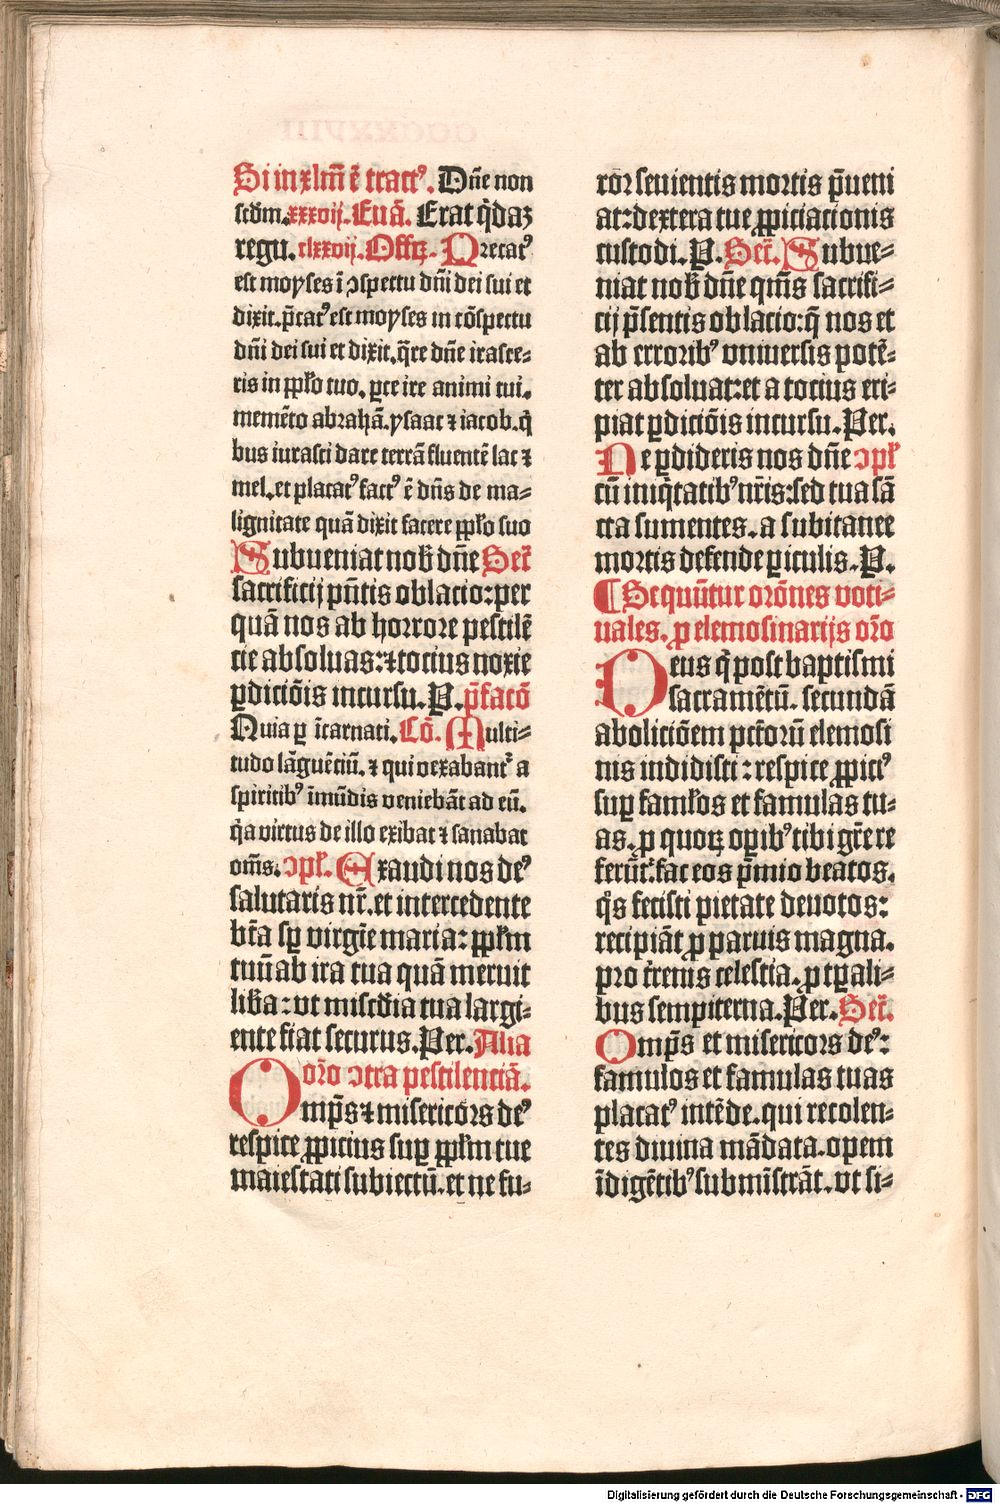 Si in xlm̄ ē tract⁹. Dn̄e non
scđm. xxxvij. Euā. Erat q̄daʒ
regu. clxxvij. Offꝫ. Precat⁹
est moyses ī ↄspectu dn̄i dei sui et
dixit. p̄cat⁹ est moyses in cōspectu
dn̄i dei sui et dixit. q̄re dn̄e irasce⸗
ris in ppƚo tuo. ꝑce ire animi tui.
memēto abrahā. ysaac ⁊ iacob. q̄
bus iurasti dare terrā fluentē lac ⁊
mel. et placat⁹ fact⁹ ē dn̄s de ma⸗
lignitate quā dixit facere ppƚo suo
Subueniat nob̄ dn̄e Secr̄
sacrificij pn̄tis oblacio: per
quā nos ab horrore pestilē
cie absoluas: ⁊ tocius noxie
ꝑdiciōis incursu. P. p̄facō
Quia ꝑ īcarnati. Cō. Multi⸗
tudo lāguēciū. ⁊ qui vexabant̄ a
spiritib⁹ īmūdis veniebāt ad eū.
q̄a virtus de illo exibat ⁊ sanabat
om̄s. ↄpƚ. Exaudi nos de⁹
salutaris nr̄. et intercedente
bt̄a sꝑ virgīe maria: ppƚm
tuū ab ira tua quā meruit
lib̄a: vt miscđia tua largi⸗
ente fiat securus. Per. Alia
or̄o ↄtra pestilenciā.
Omp̄s ⁊ misericōrs de⁹
respice ꝓpicius suꝑ ppƚm tue
maiestati subiectū. et ne fu⸗
ror seuientis mortis p̄ueni
at: dextera tue ꝓpiciacionis
custodi. P. Secr̄. Subue⸗
niat nob̄ dn̄e qm̄s sacrifi⸗
cij p̄sentis oblacio: q̄ nos et
ab errorib⁹ vniuersis potē⸗
ter absoluat: et a tocius eri⸗
piat ꝑdiciōis incursu. Per.
Ne ꝑdideris nos dn̄e ↄpƚ
cū iniq̄tatib⁹ nr̄is: sed tua sā
cta sumentes. a subitanee
mortis defende ꝑiculis. P.
¶ Sequūtur orōnes voti⸗
uales. ꝓ elemosinarijs or̄o
Deus q̄ post baptismi
sacramētū. secundā
aboliciōem pctōrū elemosi
nis indidisti: respice ꝓpici⁹
suꝑ famƚos et famulas tu⸗
as. ꝓ quoꝝ oꝑib⁹ tibi gr̄e re
ferūt̄: fac eos p̄mio beatos.
q̄s fecisti pietate deuotos:
recipiāt ꝓ paruis magna.
pro tr̄enis celestia. ꝓ tꝑali⸗
bus sempiterna. Per. Secr̄.
Omp̄s et misericors de⁹:
famulos et famulas tuas
placat⁹ intēde. qui recolen⸗
tes diuina mādata. opem
īdigētib⁹ submīstrāt. vt si⸗
Digitalisierung gefördert durch die Deutsche Forschungsgemeinschaft - DFG